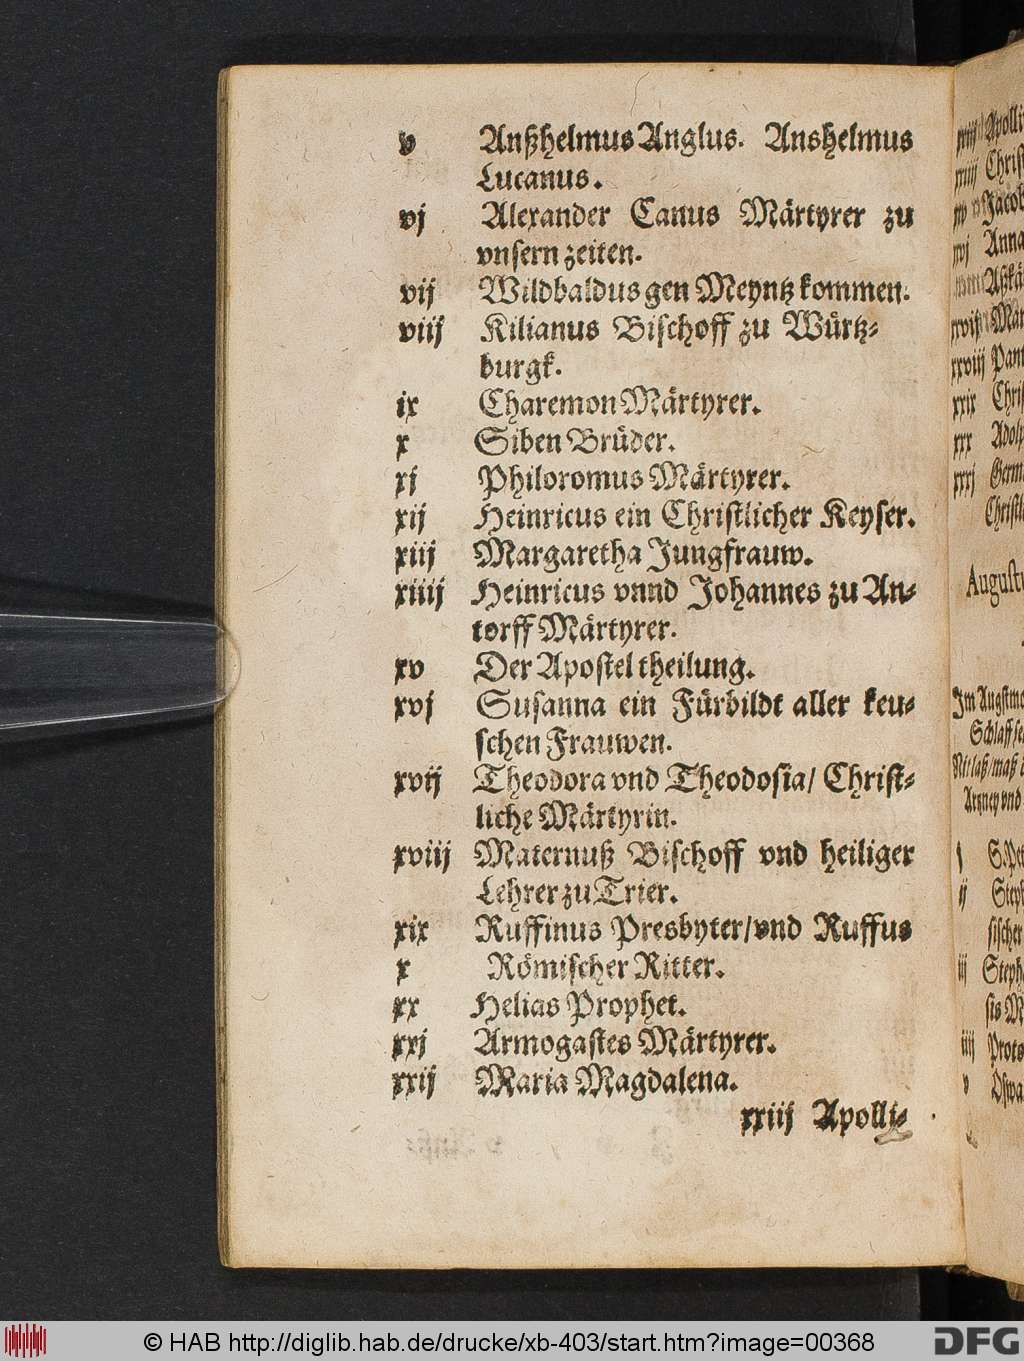 v Anßhelmus Anglus. Anshelmus
Lucanus.
vj Alexander Canus Märtyrer zu
vnsern zeiten.
vij Wildbaldus gen Meyntz kommen.
viij Kilianus Bischoff zu Würtz-
burgk.
ix Charemon Märtyrer.
x Siben Brüder.
xj Philoromus Märtyrer.
xij Heinricus ein Christlicher Keyser.
xiij Margaretha Jungfrauw.
xiiij Heinricus vnnd Johannes zu An-
torff Märtyrer.
xv Der Apostel theilung.
xvj Susanna ein Fürbildt aller keu-
schen Frauwen.
xvij Theodora vnd Theodosia/ Christ-
liche Märtyrin.
xviij Maternuß Bischoff vnd heiliger
Lehrer zu Trier.
xix Ruffinus Presbyter/vnd Ruffus
x Römischer Ritter.
xx Helias Prophet.
xxj Armogastes Märtyrer.
xxij Maria Magdalena.
xxiij Apolli-
Anna
xxviij Pant
xxix Chris
xxx Adolp
xxxj Germ
Christl
Augustu
Im Augstmo
Schlaff se
Artzney vnd
j S. Pet
ij Steph
sischer
iij Steph
sis M
iiij Prota
v Oswa
© HAB http://diglib.hab.de/drucke/xb-403/start.htm?image=00368
DFG